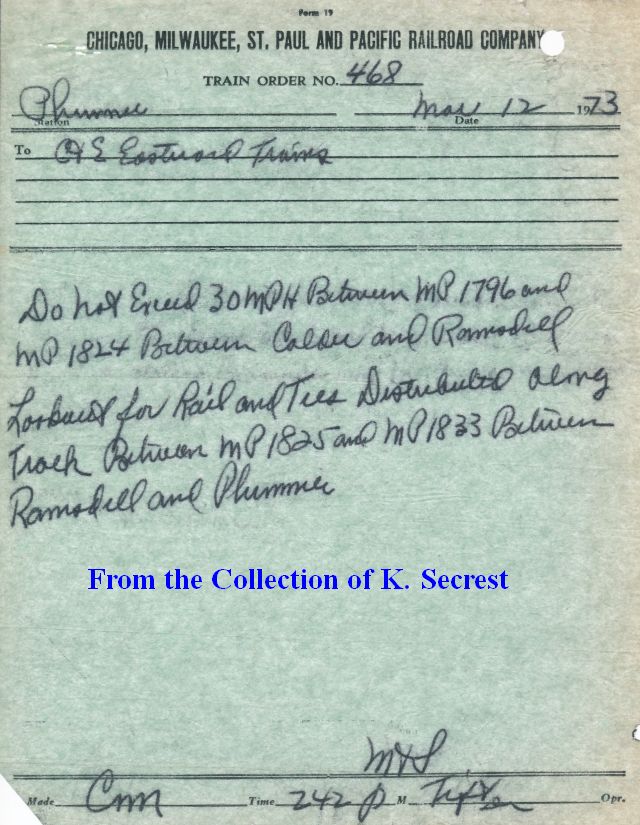 Form 19
CHICAGO, MILWAUKEE, ST. PAUL AND PACIFIC RAILROAD COMPANY
TRAIN ORDER NO. 468
Plummer Mar 12 1973
Station Date
To C&E Eastward Trains
Do Not Exceed 30 MPH Between MP 1796 and
MP 1824 Between Calder and Ramsdell
Lookout for Rail and Ties Distributed along
Track Between MP 1825 and MP 1833 Between
Ramsdell and Plummer
From the Collection of K. Secrest
Made Com Time 242 P M. Opr.